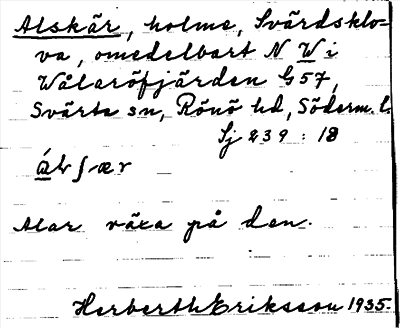 Alskär, holme, Svärdsklo-
va, omedelbart N W i
Wålaröfjärden G 57,
Svärta sn, Rönö hd, Söderm. l.
Sj 239 : 18
Alar växa på den.
Herberth Eriksson 1935.